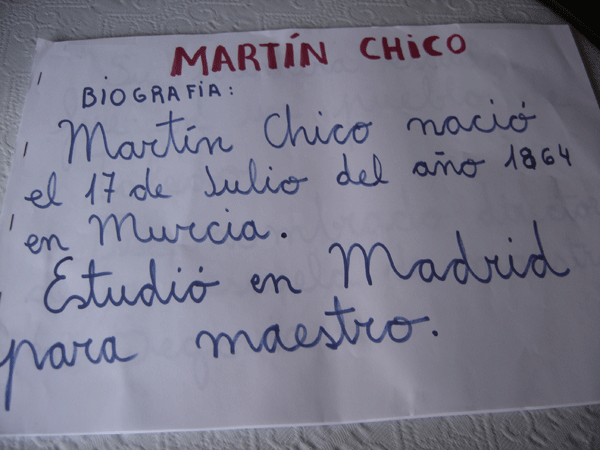 MARTÍN CHICO
BIOGRAFÍA:
Martín Chico nació
el 17 de Julio del año 1864
en Murcia.
Estudió en Madrid
para maestro.